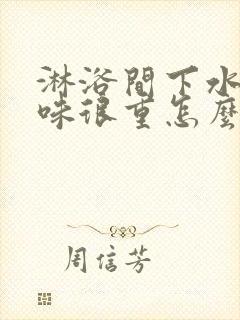 淋浴間下水
味很重怎麼
周信芳